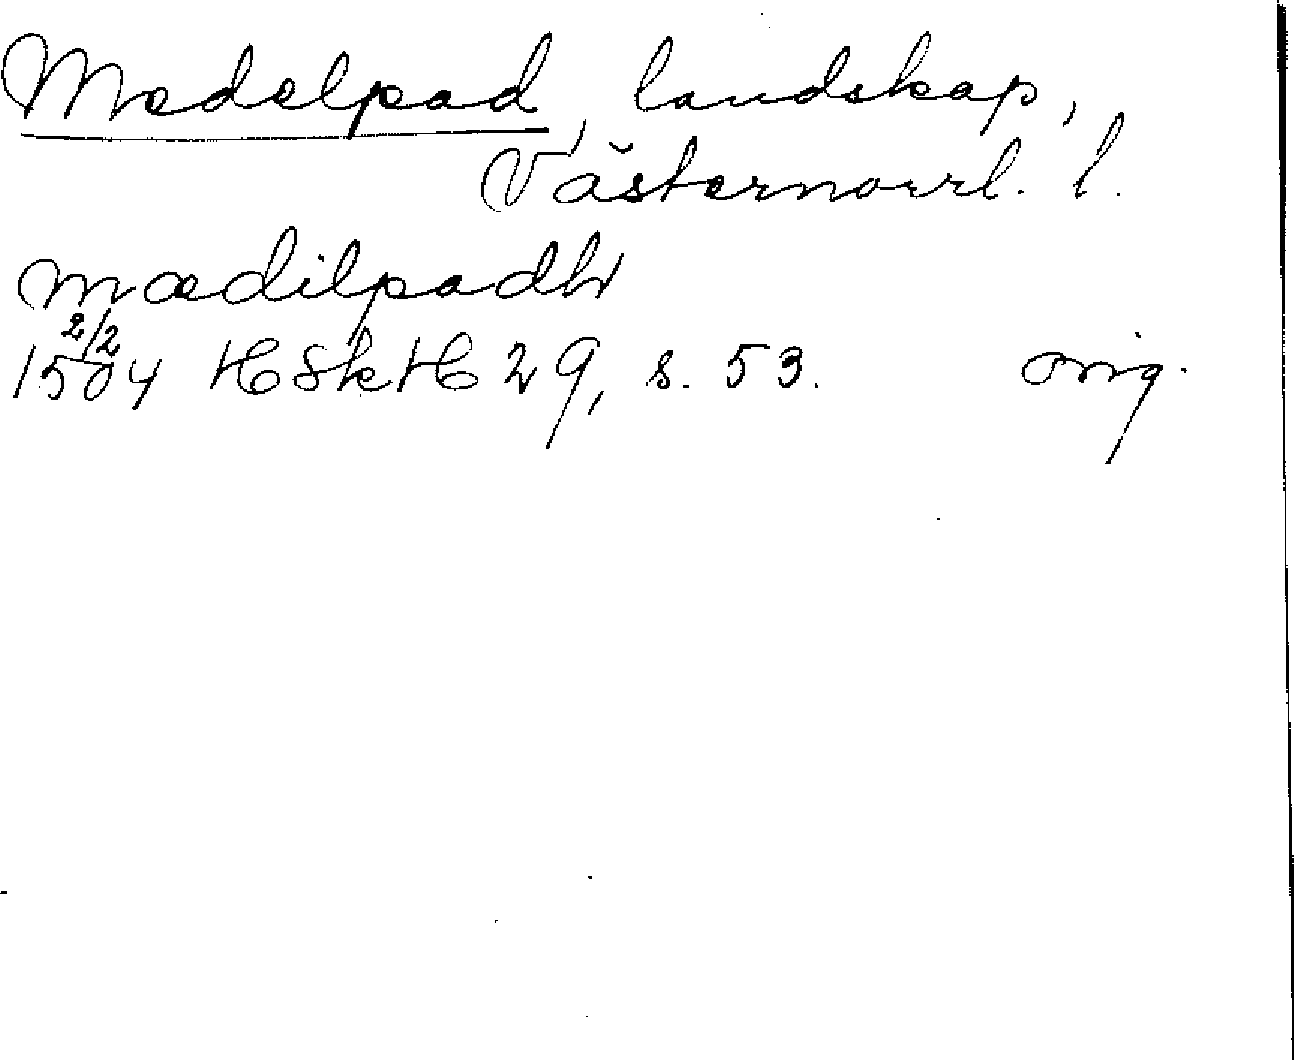 Medelpad, landskap,
Västernorrl. l.
mædilpadh
2/2
1504 HSkH 29, s. 53. orig.